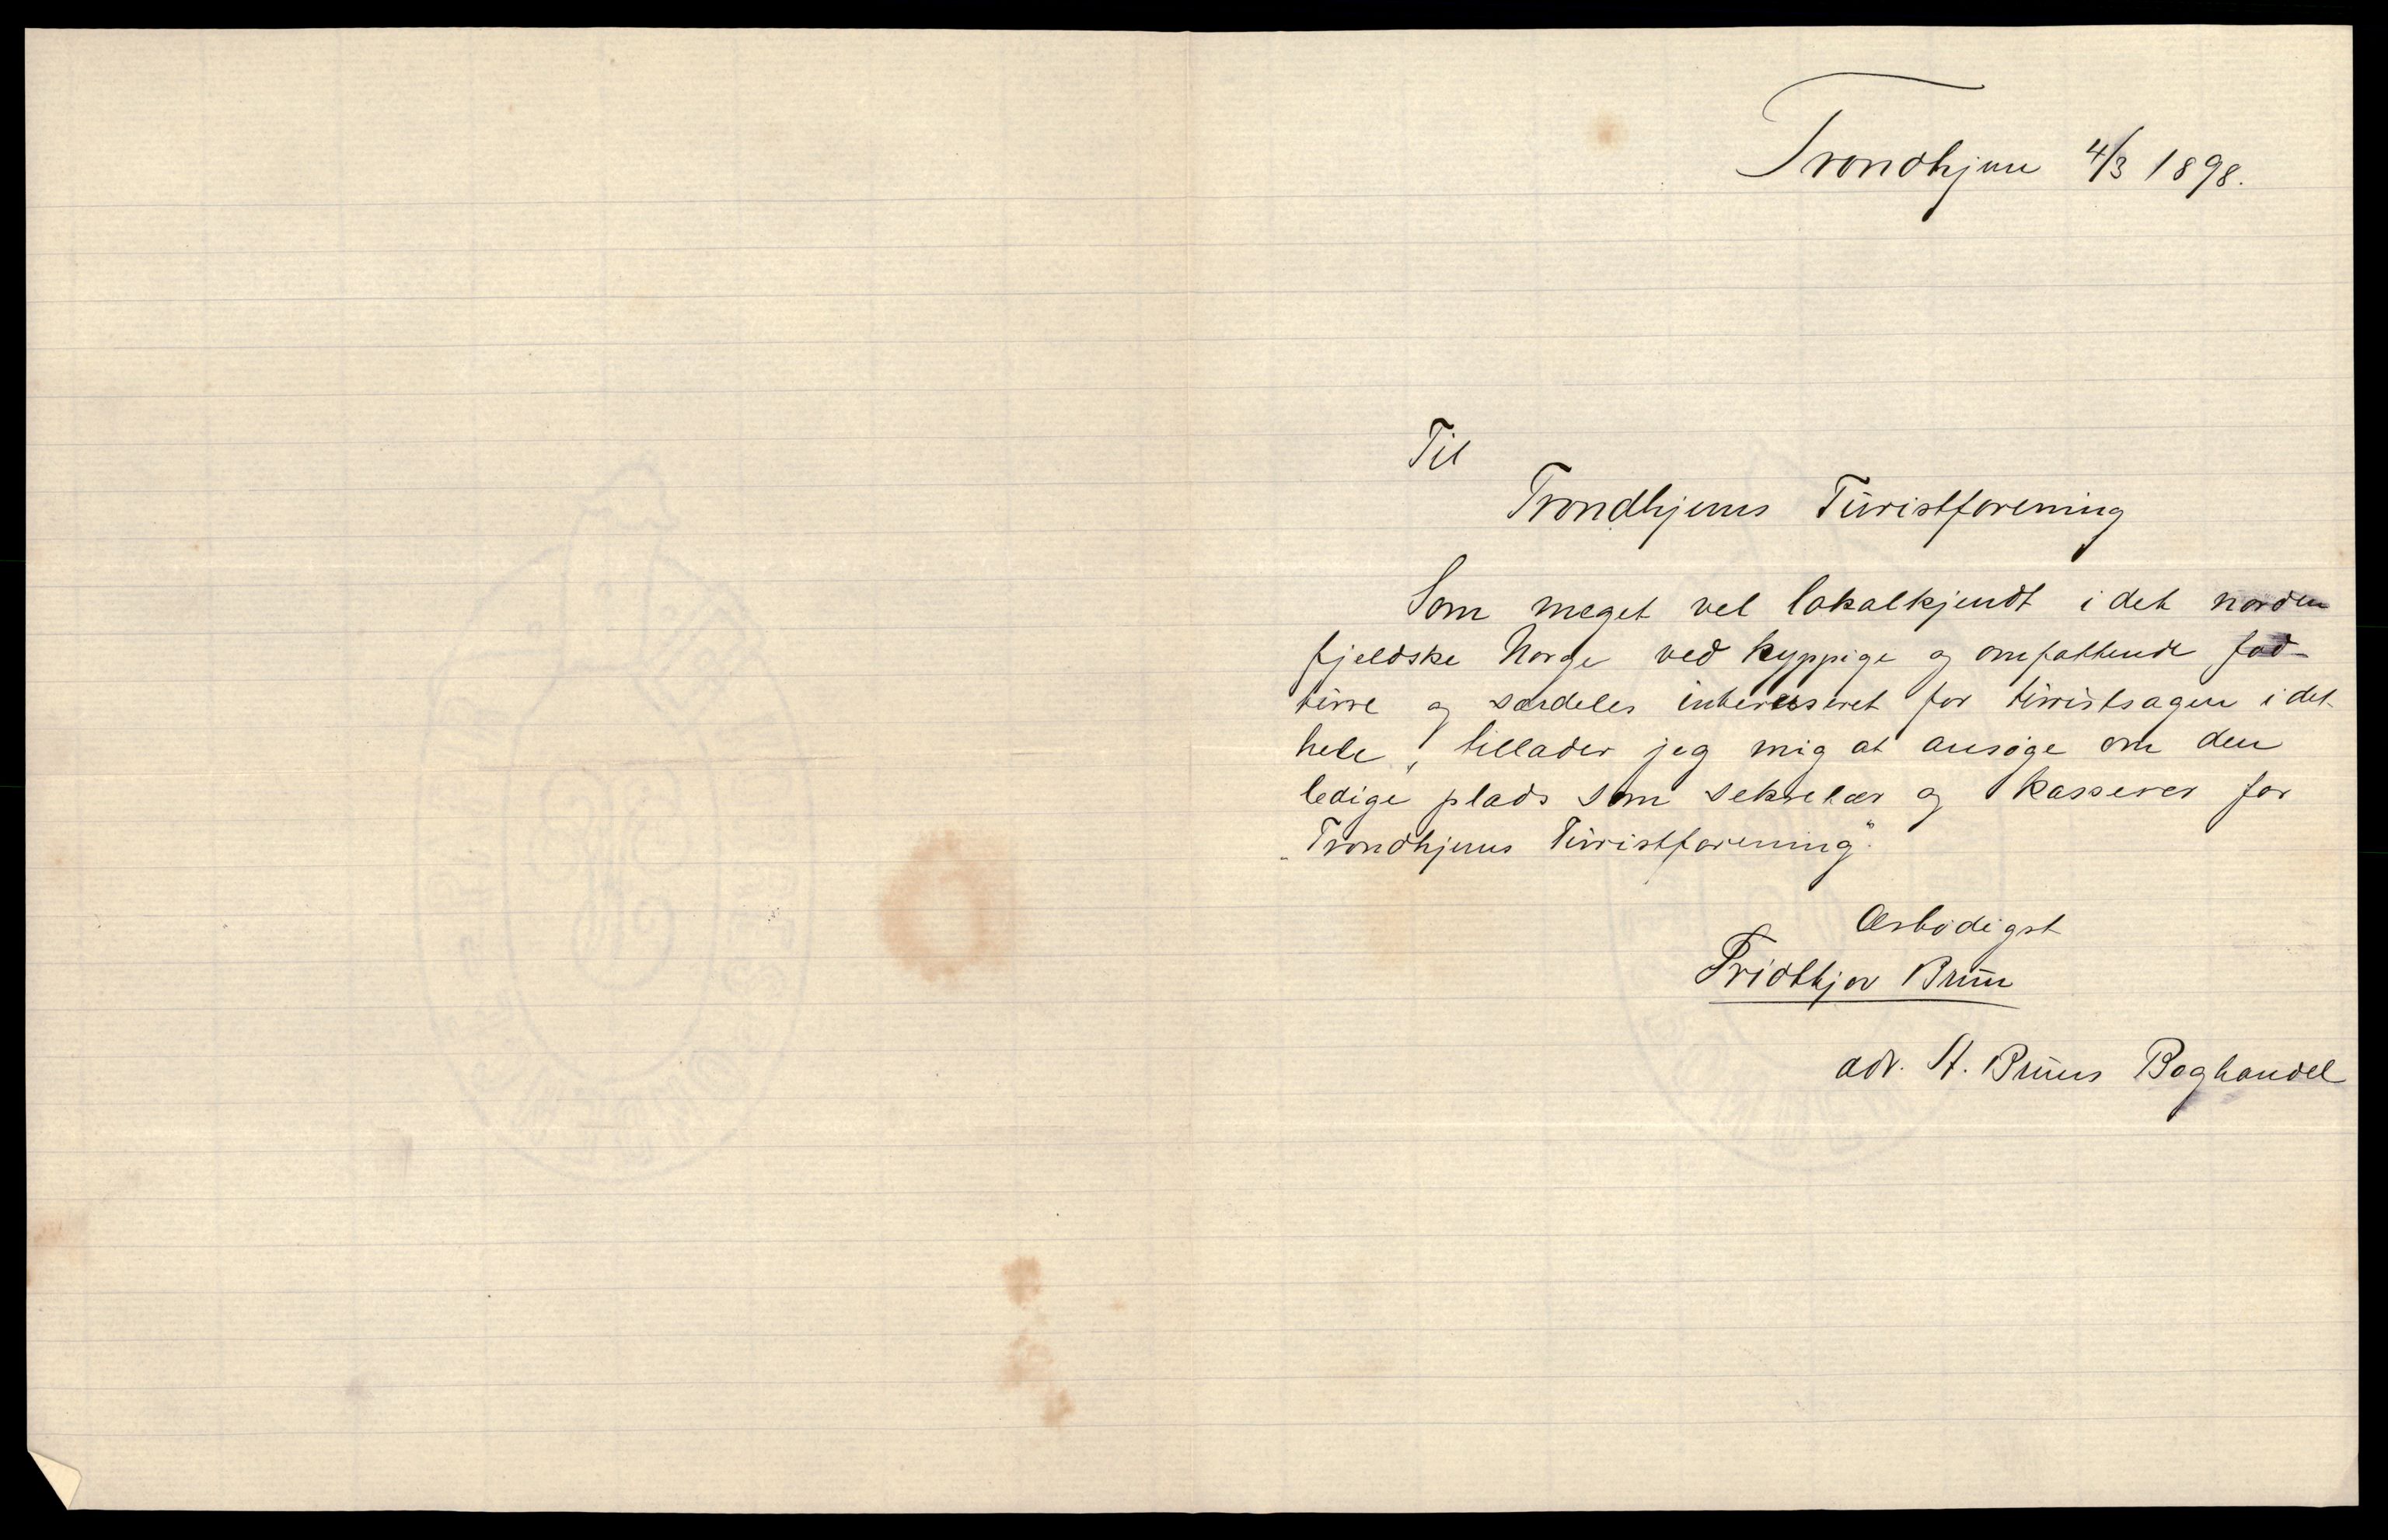 Trondhjem 4/3 1898.
Til
Trondhjems Turistforening
Som meget vel lokalkjendt i det norden
fjeldske Norge ved hyppige og omfattende fod-
turre og særdeles interesseret for turistsagen i det
hele, tillader jeg mig at ansøge om den
ledige plads som sekretær og kasserer for
"Trondhjems Turistforening".
Ærbødigst
Fridthjov Bruun
adr. A. Bruuns Boghandel